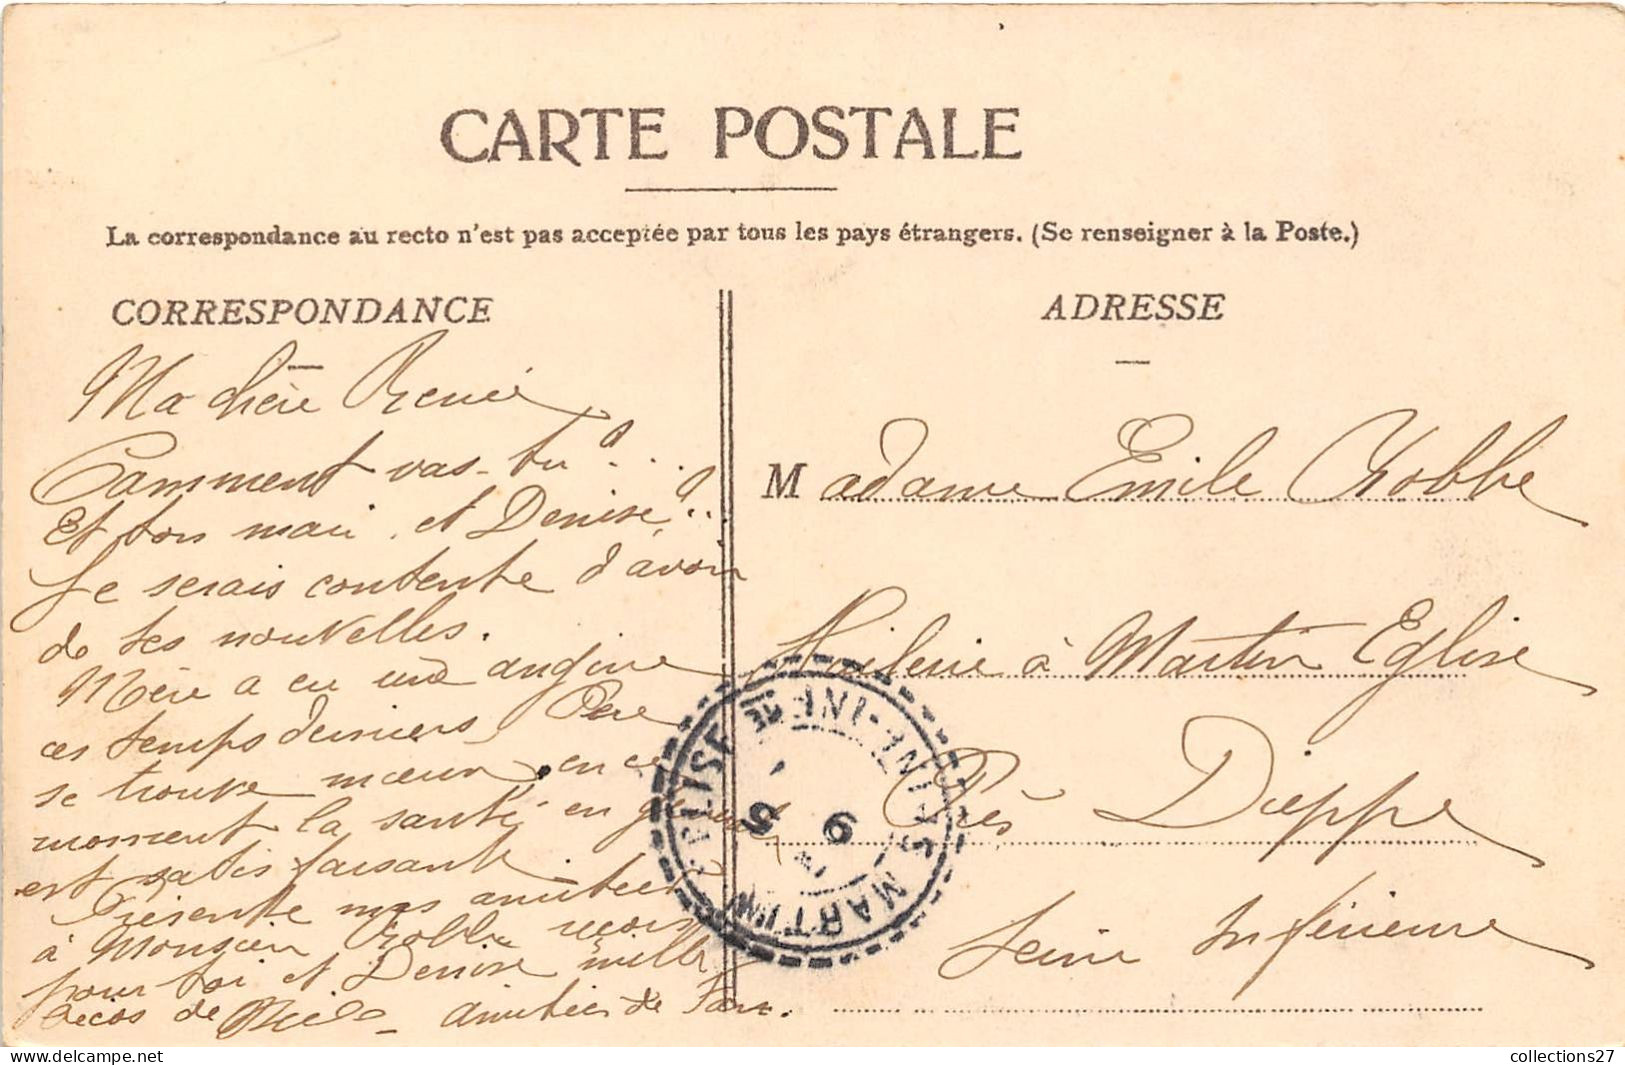 CARTE POSTALE
La correspondance au recto n'est pas acceptée par tous les pays étrangers. (Se renseigner à la Poste.)
CORRESPONDANCE
Ma chère Renée
Comment vas-tu ? ...
Et ton mari, et Denise ? ..
Je serais contente d'avoir
de tes nouvelles.
Mère a eu une angine
ces temps derniers. Père
se trouve mieux, en ce
moment la santé en général
est satisfaisante.
Présente mes amitiés
à Monsieur Robbe reçois
pour toi et Denise mille
de amitiés de
ADRESSE
Madame Emile Robbe
à Martin Eglise
Près Dieppe
Seine Inférieure
MARTIN EGLISE SEINE-INFRE
5 9
collections27